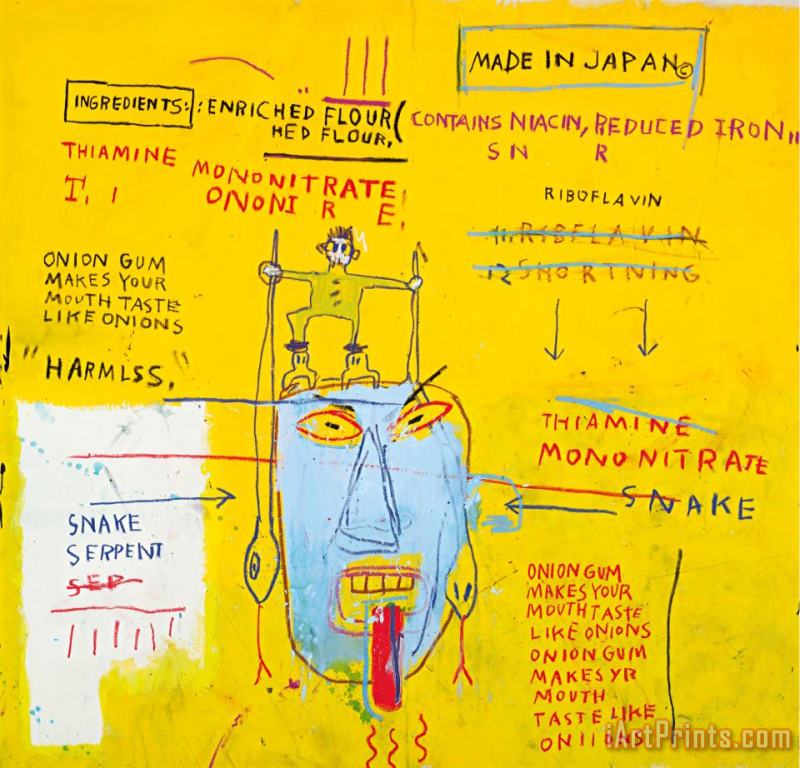 MADE IN JAPAN©
INGREDIENTS: : ENRICHED FLOUR ( CONTAINS NIACIN, REDUCED IRON,,
HED FLOUR,
S N R
THIAMINE MONONITRATE
T, I ONONI R E,
RIBOFLAVIN
11. RIBFLAVIN
12 SHORTNING
ONION GUM
MAKES YOUR
MOUTH TASTE
LIKE ONIONS
" HARMLSS,
THIAMINE
MONONITRATE
SNAKE
SNAKE
SERPENT
SEP
ONION GUM
MAKES YOUR
MOUTH TASTE
LIKE ONIONS
ONION GUM
MAKES YR
MOUTH
TASTE LIKE
ONIIONS
iArtPrints.com